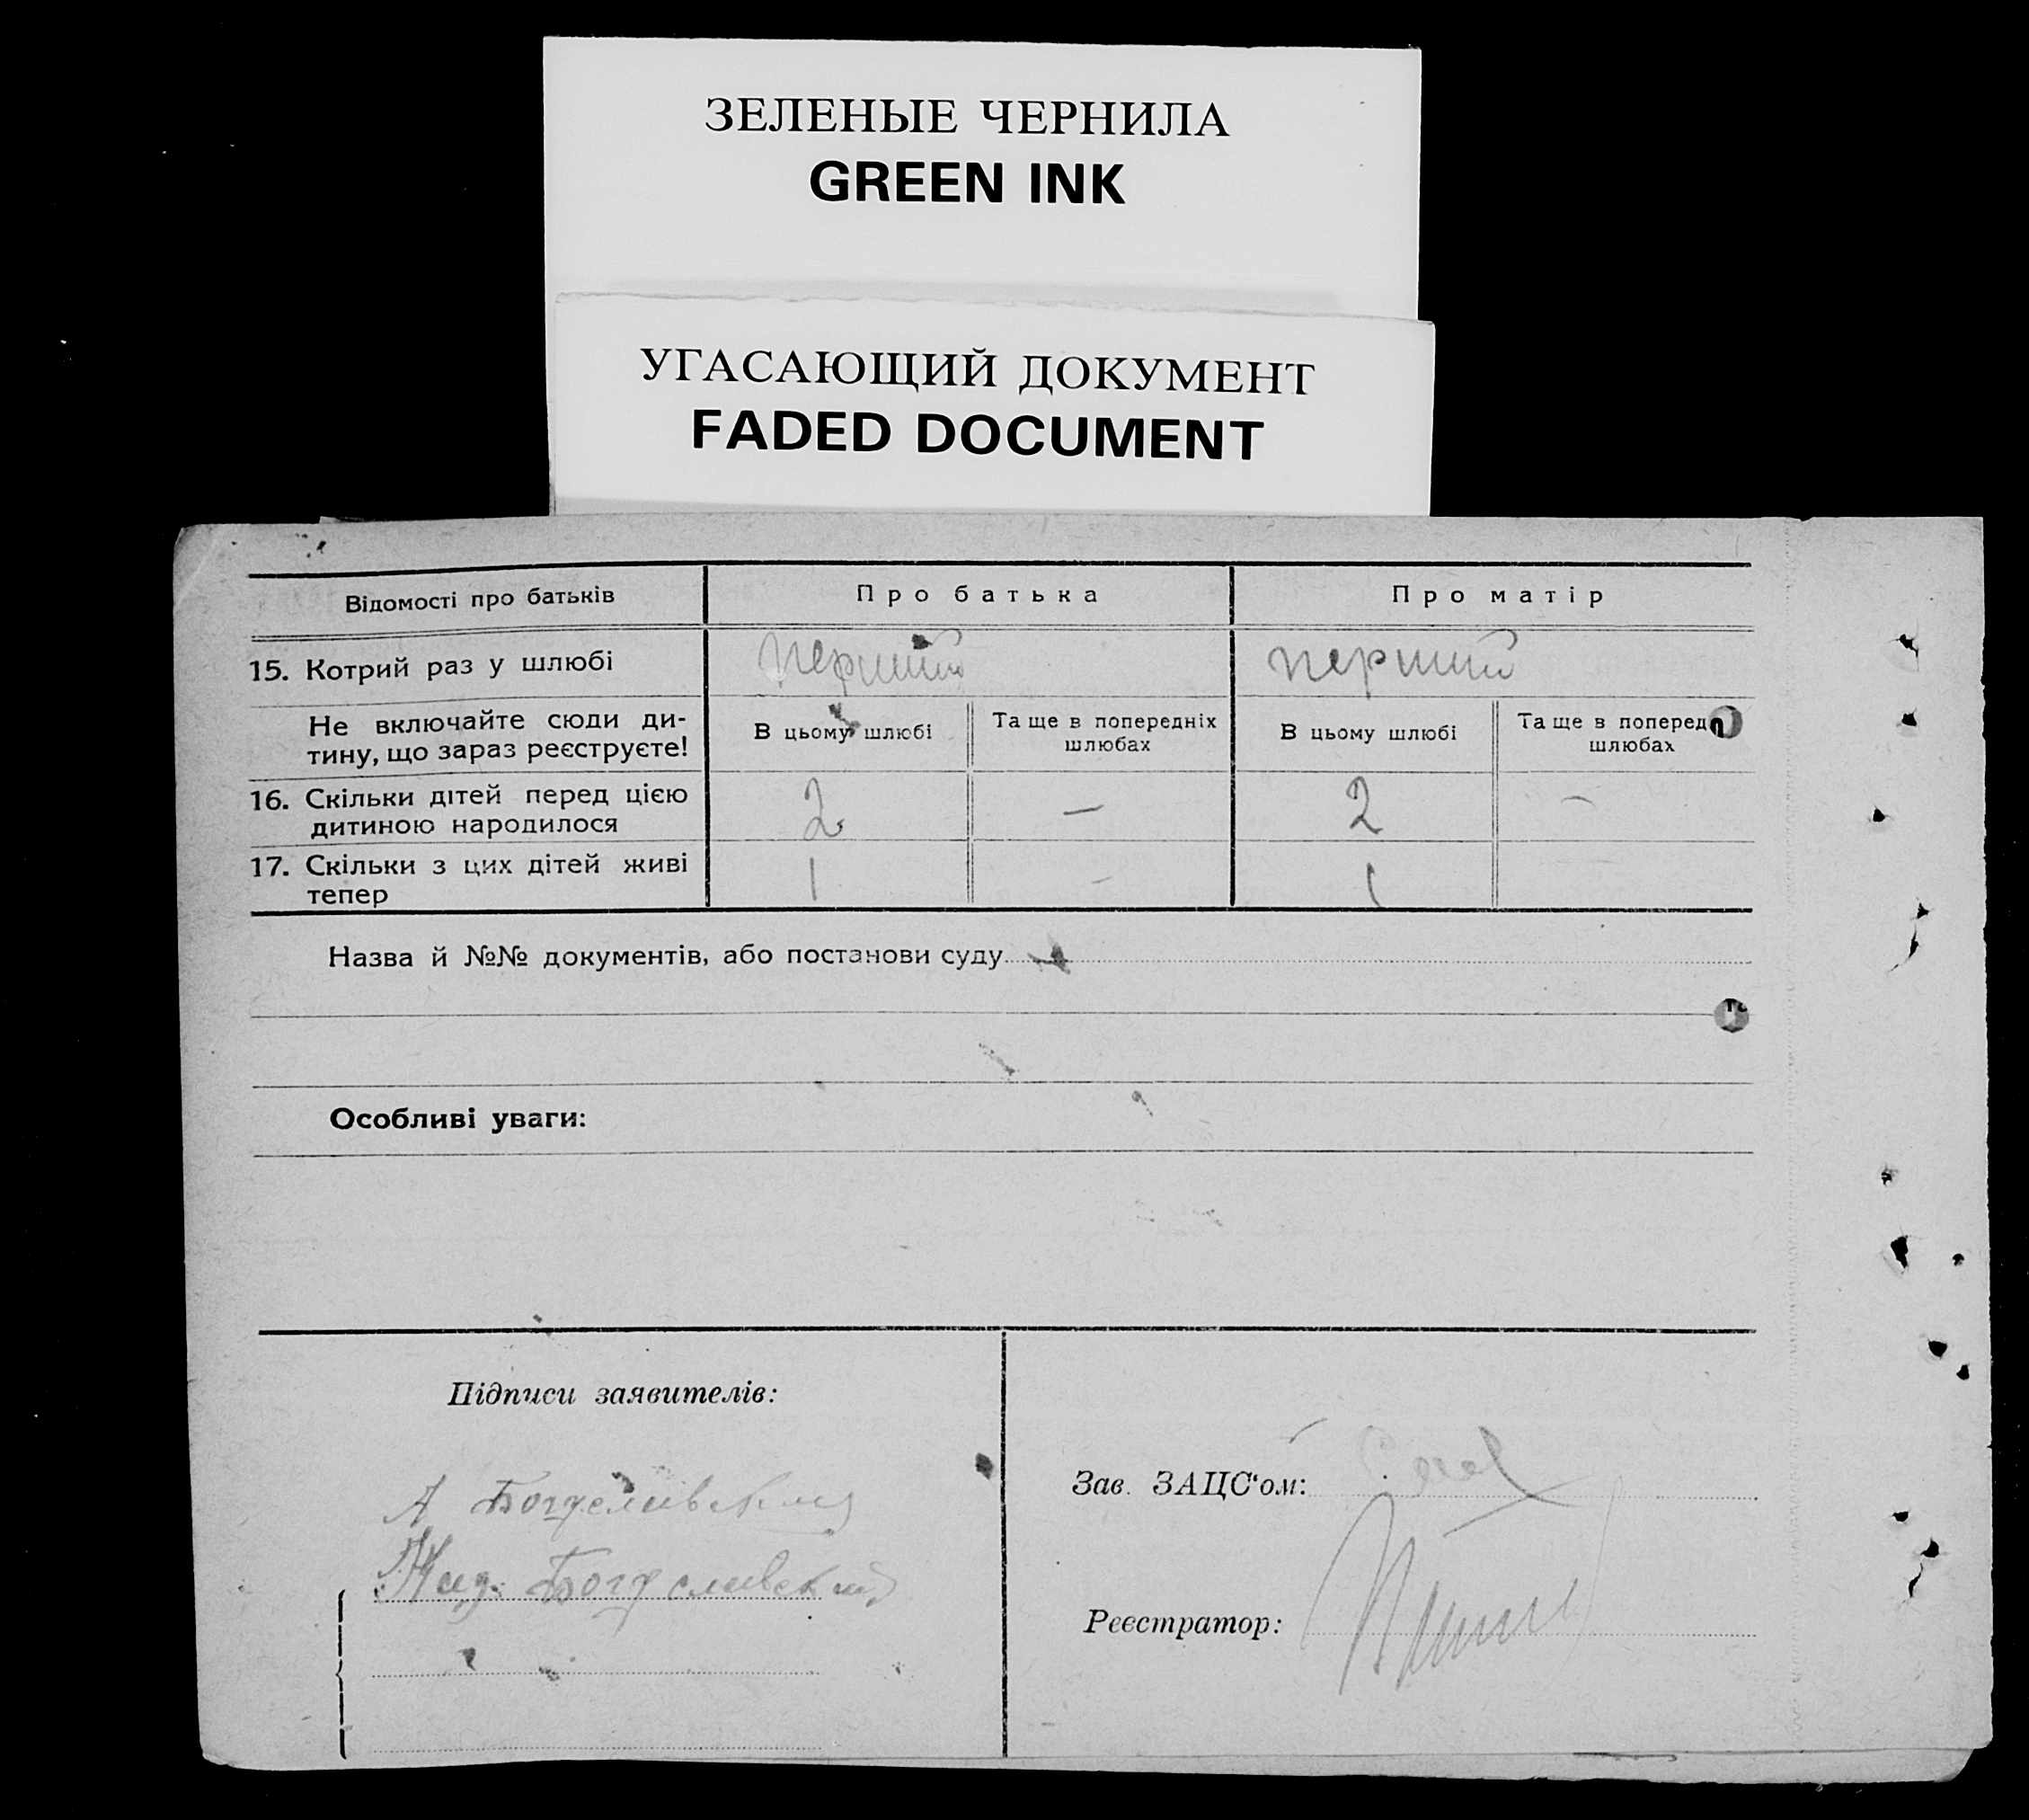 ЗЕЛЕНЫЕ ЧЕРНИЛА
GREEN INK
УГАСАЮЩИЙ ДОКУМЕНТ
FADED DOCUMENT
Відомості про батьків Про батька Про матір
15. Котрий раз у шлюбі перший перший
Не включайте сюди ди-
тину, що зараз реєструєте!
В цьому шлюбі Та ще в попередніх
шлюбах
В цьому шлюбі Та ще в поперед
шлюбах
16. Скільки дітей перед цією
дитиною народилося
2 — 2 —
17. Скільки з цих дітей живі
тепер
1 — 1
Назва й №№ документів, або постанови суду
Особливі уваги:
Підписи заявителів:
А
Зав. ЗАЦС‘ом:
Реєстратор: